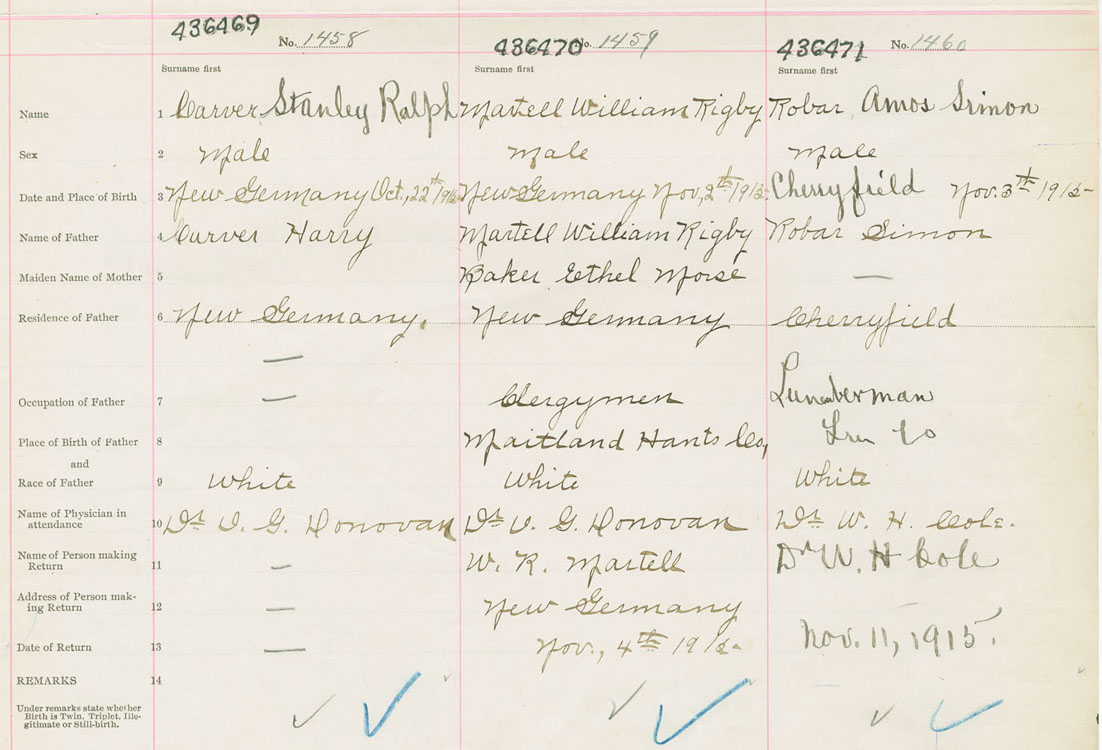 436469 No. 1458 436470 No. 1459 436471 No. 1460
Surname first Surname first Surname first
Name 1 Carver Stanley Ralph Martell William Rigby Robar Amos Simon
Sex 2 Male Male Male
Date and Place of Birth 3 New Germany Oct., 22th 1915 New Germany Nov, 2th 1915 Cherryfield Nov. 3th 1915
Name of Father 4 Carver Harry Martell William Rigby Robar Simon
Maiden Name of Mother 5 Baker Ethel Morse —
Residence of Father 6 New Germany, New Germany Cherryfield
—
Occupation of Father 7 — Clergymen Lumberman
Place of Birth of Father 8 Maitland Hants Co, Lun Co
and
Race of Father 9 White White White
Name of Physician in
attendance 10 Dr. G. Donovan Dr. G. Donovan Dr W. H. Cole.
Name of Person making
Return 11 — W. R. Martell Dr W. H Cole
Address of Person mak-
ing Return 12 — New Germany
Date of Return 13 — Nov., 4th 1915 Nov. 11, 1915.
REMARKS 14
Under remarks state whether
Birth is Twin, Triplet, Ille-
gitimate or Still-birth.